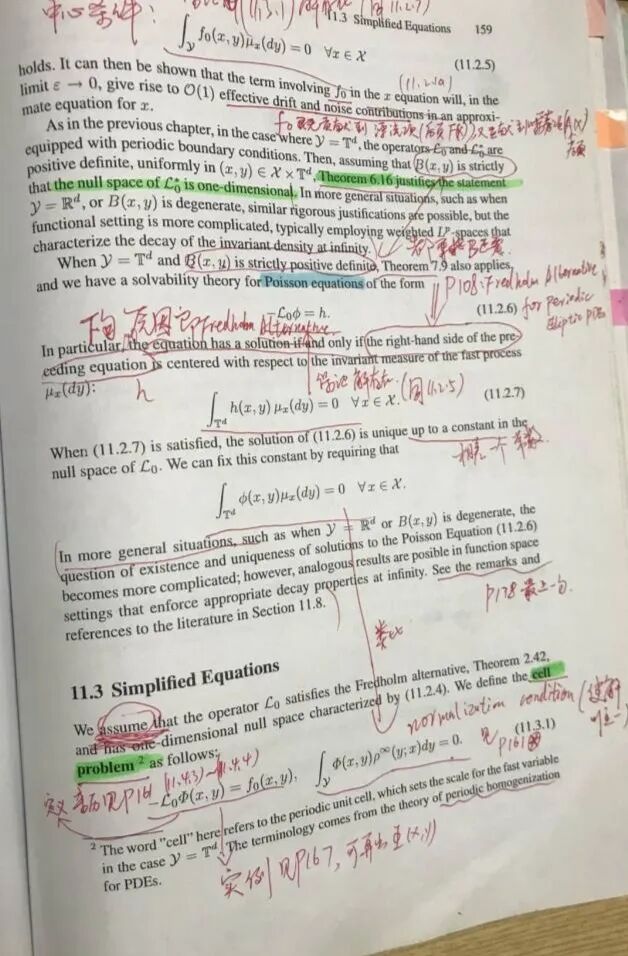 中心条件:
11.3 Simplified Equations 159
∫_𝒴 f₀(x, y)μₓ(dy) = 0 ∀x ∈ 𝒳 (11.2.5)
holds. It can then be shown that the term involving f₀ in the x equation will, in the
limit ε → 0, give rise to 𝒪(1) effective drift and noise contributions in an approxi-
mate equation for x.
As in the previous chapter, in the case where 𝒴 = 𝕋ᵈ, the operators ℒ₀ and ℒ₀* are
equipped with periodic boundary conditions. Then, assuming that B(x, y) is strictly
positive definite, uniformly in (x, y) ∈ 𝒳 × 𝕋ᵈ, Theorem 6.16 justifies the statement
that the null space of ℒ₀* is one-dimensional. In more general situations, such as when
𝒴 = ℝᵈ, or B(x, y) is degenerate, similar rigorous justifications are possible, but the
functional setting is more complicated, typically employing weighted Lᵖ-spaces that
characterize the decay of the invariant density at infinity.
When 𝒴 = 𝕋ᵈ and B(x, y) is strictly positive definite, Theorem 7.9 also applies,
and we have a solvability theory for Poisson equations of the form
P108: Fredholm Alternative
for Periodic
Elliptic PDEs
−ℒ₀ϕ = h. (11.2.6)
Fredholm Alternative
In particular, the equation has a solution if and only if the right-hand side of the pre-
ceding equation is centered with respect to the invariant measure of the fast process
μₓ(dy):
h
(同11.2.5)
∫_𝕋ᵈ h(x, y) μₓ(dy) = 0 ∀x ∈ 𝒳. (11.2.7)
When (11.2.7) is satisfied, the solution of (11.2.6) is unique up to a constant in the
null space of ℒ₀. We can fix this constant by requiring that
相差一个常数
∫_𝕋ᵈ ϕ(x, y)μₓ(dy) = 0 ∀x ∈ 𝒳.
In more general situations, such as when 𝒴 = ℝᵈ or B(x, y) is degenerate, the
question of existence and uniqueness of solutions to the Poisson Equation (11.2.6)
becomes more complicated; however, analogous results are posible in function space
settings that enforce appropriate decay properties at infinity. See the remarks and
references to the literature in Section 11.8.
P178 最上一句.
类似
11.3 Simplified Equations
We assume that the operator ℒ₀ satisfies the Fredholm alternative, Theorem 2.42,
and has one-dimensional null space characterized by (11.2.4). We define the cell
problem ² as follows:
normalization condition
见P161
(11.4.3)~(11.4.4)
−ℒ₀Φ(x, y) = f₀(x, y), ∫_𝒴 Φ(x, y)ρ^∞(y; x)dy = 0. (11.3.1)
² The word "cell" here refers to the periodic unit cell, which sets the scale for the fast variable
in the case 𝒴 = 𝕋ᵈ. The terminology comes from the theory of periodic homogenization
for PDEs.
实例见P167, 可算出Φ(x,y)